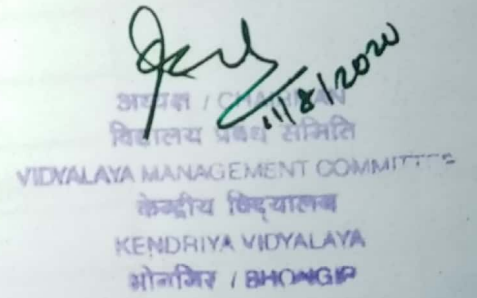 11/8/2020
अध्यक्ष / CHAIRMAN
विद्यालय प्रबंध समिति
VIDYALAYA MANAGEMENT COMMITTEE
केन्द्रीय विद्यालय
KENDRIYA VIDYALAYA
भोनगिर / BHONGIR